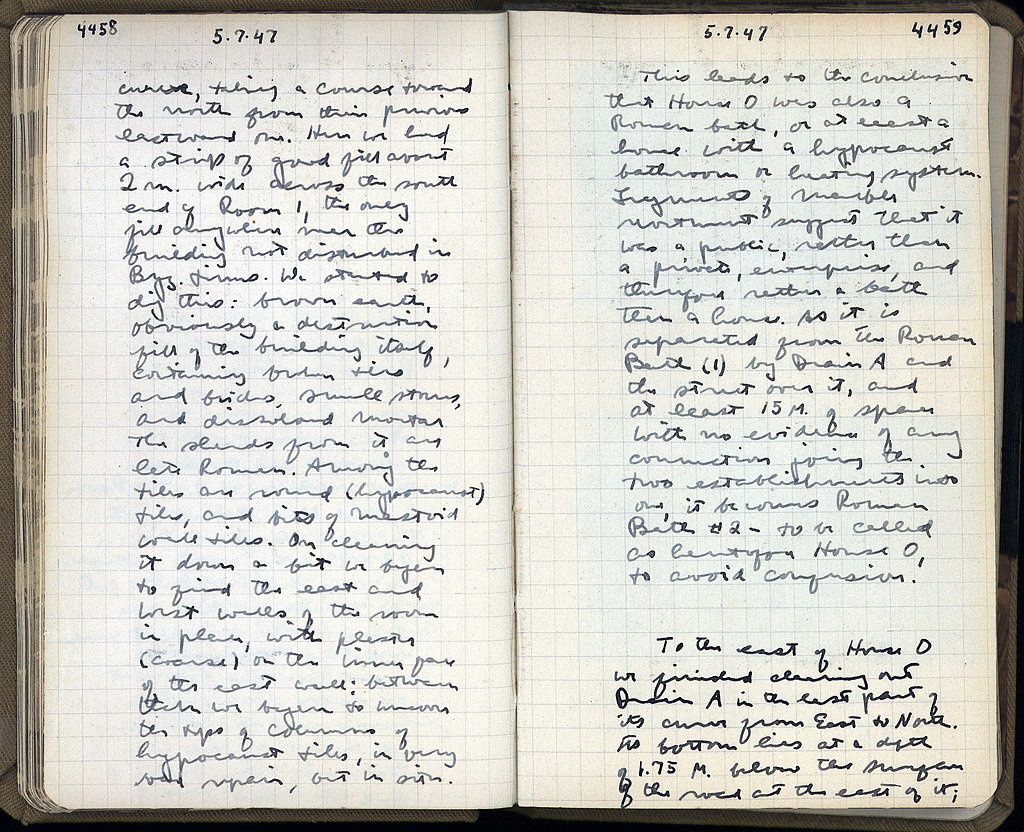 4458
5.7.47
curve, taking a course toward
the north from their previous
eastward one. Here we had
a strip of good fill about
2 m. wide across the south
end of Room 1, the only
fill anywhere near this
building not disturbed in
Byz. times. We started to
dig this: brown earth,
obviously a destruction
fill of the building itself,
containing broken tiles
and bricks, small stones,
and dissolved mortar.
The sherds from it are
late Roman. Among the
tiles are round (hypocaust)
tiles, and bits of mastoid
wall tiles. On cleaning
it down a bit we began
to find the east and
west walls of the room
in place, with plaster
(coarse) on the inner face
of the east wall; between
them we began to uncover
the tops of columns of
hypocaust tiles, in very
bad repair, but in situ.
5.7.47
4459
This leads to the conclusion
that House O was also a
Roman bath, or at least a
house with a hypocaust
bathroom or heating system.
Fragments of marble
revetment suggest that it
was a public, rather than
a private, enterprise, and
therefore rather a bath
than a house. As it is
separated from the Roman
Bath (1) by Drain A and
the street over it, and
at least 15 M. of space
with no evidence of any
connection joining the
two establishments into
one, it becomes Roman
Bath #2 - to be called
as heretofore House O,
to avoid confusion.
To the east of House O
we finished cleaning out
Drain A in the last part of
its curve from East to North.
Its bottom lies at a depth
of 1.75 M. below the surface
of the road at the east of it;